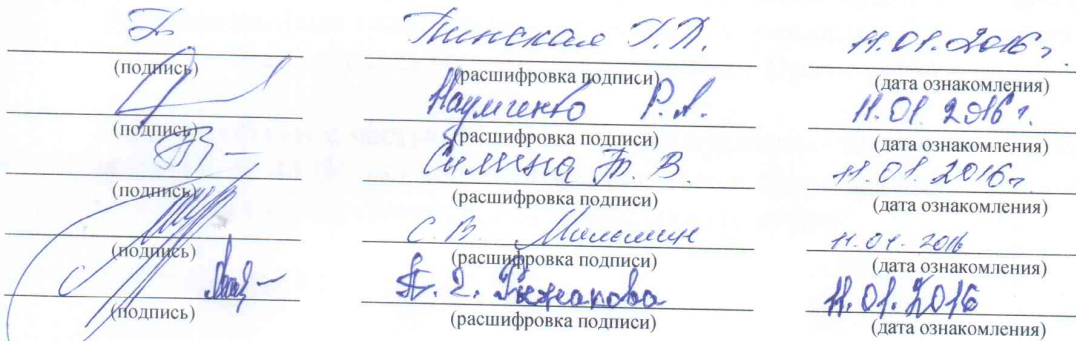 Пинская Г.П. 11.01.2016 г.
(подпись) (расшифровка подписи) (дата ознакомления)
Науменко Р.А. 11.01.2016 г.
(подпись) (расшифровка подписи) (дата ознакомления)
Силина Т.В. 11.01.2016 г.
(подпись) (расшифровка подписи) (дата ознакомления)
С.В. 11.01.2016
(подпись) (расшифровка подписи) (дата ознакомления)
11.01.2016
(подпись) (расшифровка подписи) (дата ознакомления)